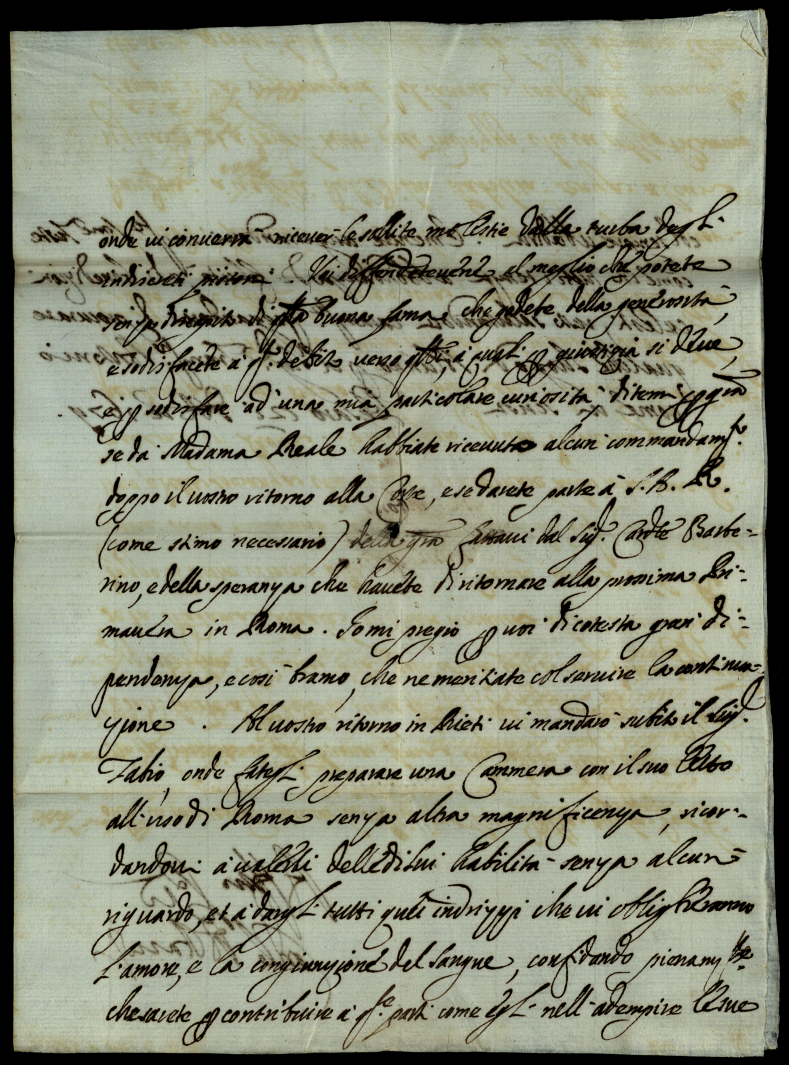 onde vi converrà ricever le solite molestie dalla turba degl'
indiscreti Vi diffenderete al meglio che potete
senza di buona fama che godete della generosità,
e sodisfacete à q.i debiti verso à quali p giustizia si deve,
e p sodisfare ad una mia particolare curiosità ditemi p gra
se da Madama Reale habbiate ricevuto alcun commandam.to
doppo il vostro ritorno alla Corte, e se darete parte à S. A. R.
(come stimo necessario) della gra fattavi dal Sig.r Cardle Barbe-
rino, e della speranza che havete di ritornare alla prossima Pri-
mavera in Roma. Io mi pregio p voi di cotesta gran di-
pendenza, e così bramo, che ne meritate col servire la continua-
zione. Al vostro ritorno in Rieti vi mandarò subito il Sig.r
Fabio, onde fategl' preparare una Cammera con il suo letto
all'uso di Roma senza altra magnificenza, ricor-
dandovi à valerli delle di lui habilità senza alcun
riguardo, et à dargl' tutti queli indrizzi che vi oblighàranno
l'amore, e la congiunzione del sangue, confidando pienam.te
che sarete p contribuire à q.te parti come egl' nell'adempire le sue